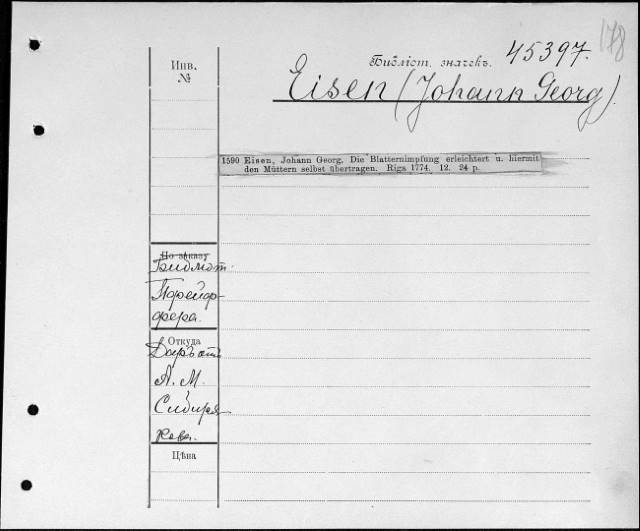 178
Библіот. значекъ. 45397.
Инв.
№
Eisen (Johann Georg).
1590 Eisen, Johann Georg. Die Blatternimpfung erleichtert u. hiermit
den Müttern selbst übertragen. Riga 1774. 12. 24 p.
По заказу
Библіот.
Пфейф-
фера.
Откуда
Даръ отъ
А. М.
Сибиря-
кова.
Цѣна